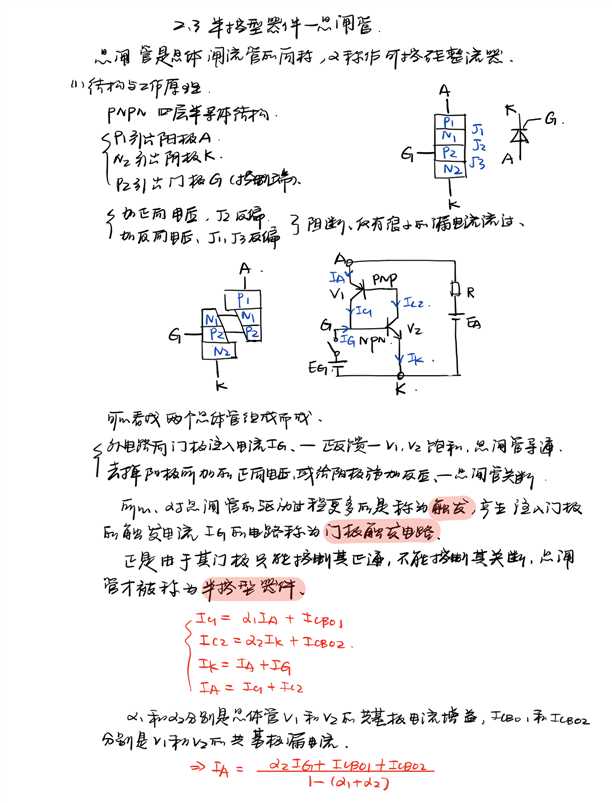 2.3 半控型器件—晶闸管.
晶闸管是晶体闸流管的简称,又称作可控硅整流器.
(1)结构与工作原理
PNPN 四层半导体结构.
P1引出阳极A.
N2引出阴极K.
P2引出门极G(控制端).
加正向电压,J2反偏
加反向电压,J1,J3反偏
阻断、仅有很小的漏电流流过、
A
P1
N1
P2
N2
J1
J2
J3
G
K
K
G
A
A
P1
N1
N1
P2
P2
N2
G
K
A
IA
PNP
V1
IC1
IC2
G
IG
NPN
V2
EG
IK
K
R
EA
可以看成两个晶体管组成而成.
外电路向门极注入电流IG、—正反馈—V1,V2饱和,晶闸管导通.
去掉阳极所加的正向电压,或给阳极施加反压、—晶闸管关断.
所以、对晶闸管的驱动过程更多的是称为触发,产生注入门极
的触发电流IG的电路称为门极触发电路.
正是由于其门极只能控制其正通,不能控制其关断,晶闸
管才被称为半控型器件、
IC1 = α1IA + ICBO1
IC2 = α2IK + ICBO2.
IK = IA+IG
IA = IC1+IC2
α1和α2分别是晶体管V1和V2的共基极电流增益,ICBO1和ICBO2
分别是V1和V2的共基极漏电流.
⇒ IA = α2IG+ICBO1+ICBO2
1-(α1+α2)